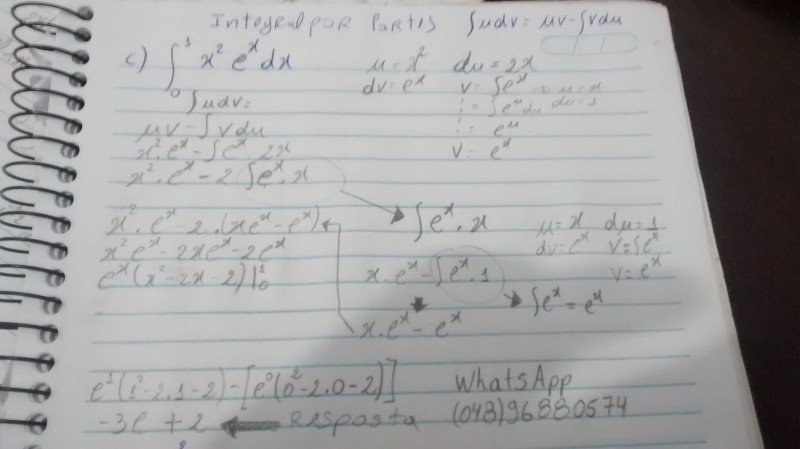 Integral por Partes ∫udv = uv - ∫vdu
c) ∫₀¹ x² eˣ dx
u = x² du = 2x
dv = eˣ v = ∫eˣ
u = x
= ∫eᵘ du du = 1
= eᵘ
v = eˣ
∫udv =
uv - ∫vdu
x² · eˣ - ∫eˣ · 2x
x² · eˣ - 2 ∫eˣ · x
x² · eˣ - 2 · (xeˣ - eˣ)
x²eˣ - 2xeˣ - 2eˣ
eˣ(x² - 2x - 2)|₀¹
∫eˣ · x
u = x du = 1
dv = eˣ v = ∫eˣ
v = eˣ
x · eˣ - ∫eˣ · 1
∫eˣ = eˣ
x · eˣ - eˣ
e¹(1² - 2.1 - 2) - [e⁰(0² - 2.0 - 2)]
-3e + 2 Resposta
WhatsApp
(048)96880574